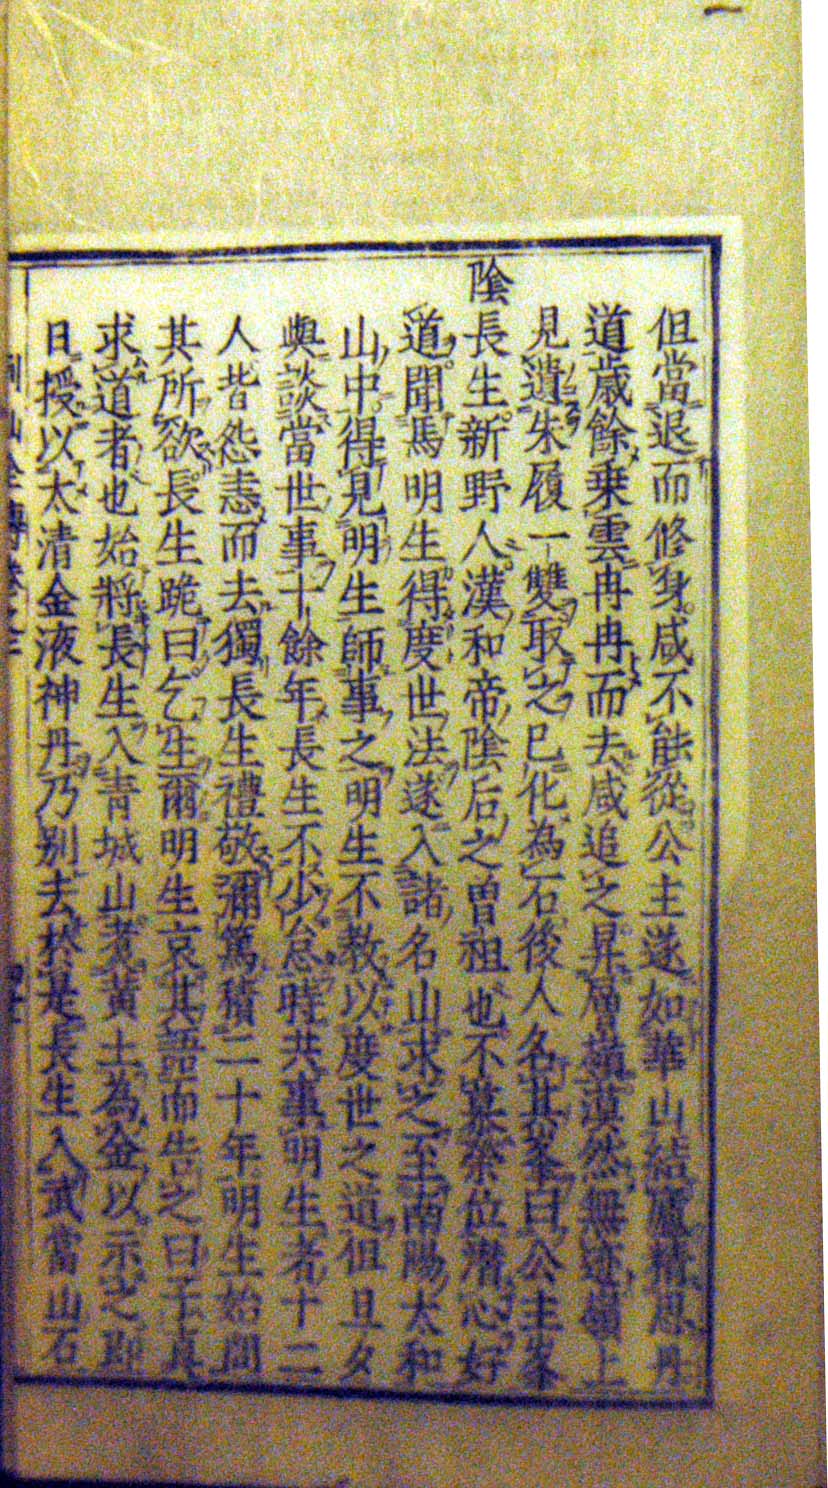 但當退而修身咸不能從公主遂如華山結廬精思丹
道歲餘乗雲冉冉而去咸追之昇層巔漠然無迹嶺上
見遺朱履一雙取之已化為石後人名其峯曰公主峯
陰長生新野人漢和帝陰后之曾祖也不慕榮位潛心好
道聞馬明生得度世法遂入諸名山求之至南陽太和
山中得見明生師事之明生不教以度世之道但旦夕
與談當世事十餘年長生不少怠時共事明生者十二
人皆怨恚而去獨長生禮敬彌篤積二十年明生始問
其所欲長生跪曰乞生爾明生哀其語而告之曰子真
求道者也始將長生入青城山煮黃土為金以示之即
日授以太清金液神丹乃别去於是長生入武當山石